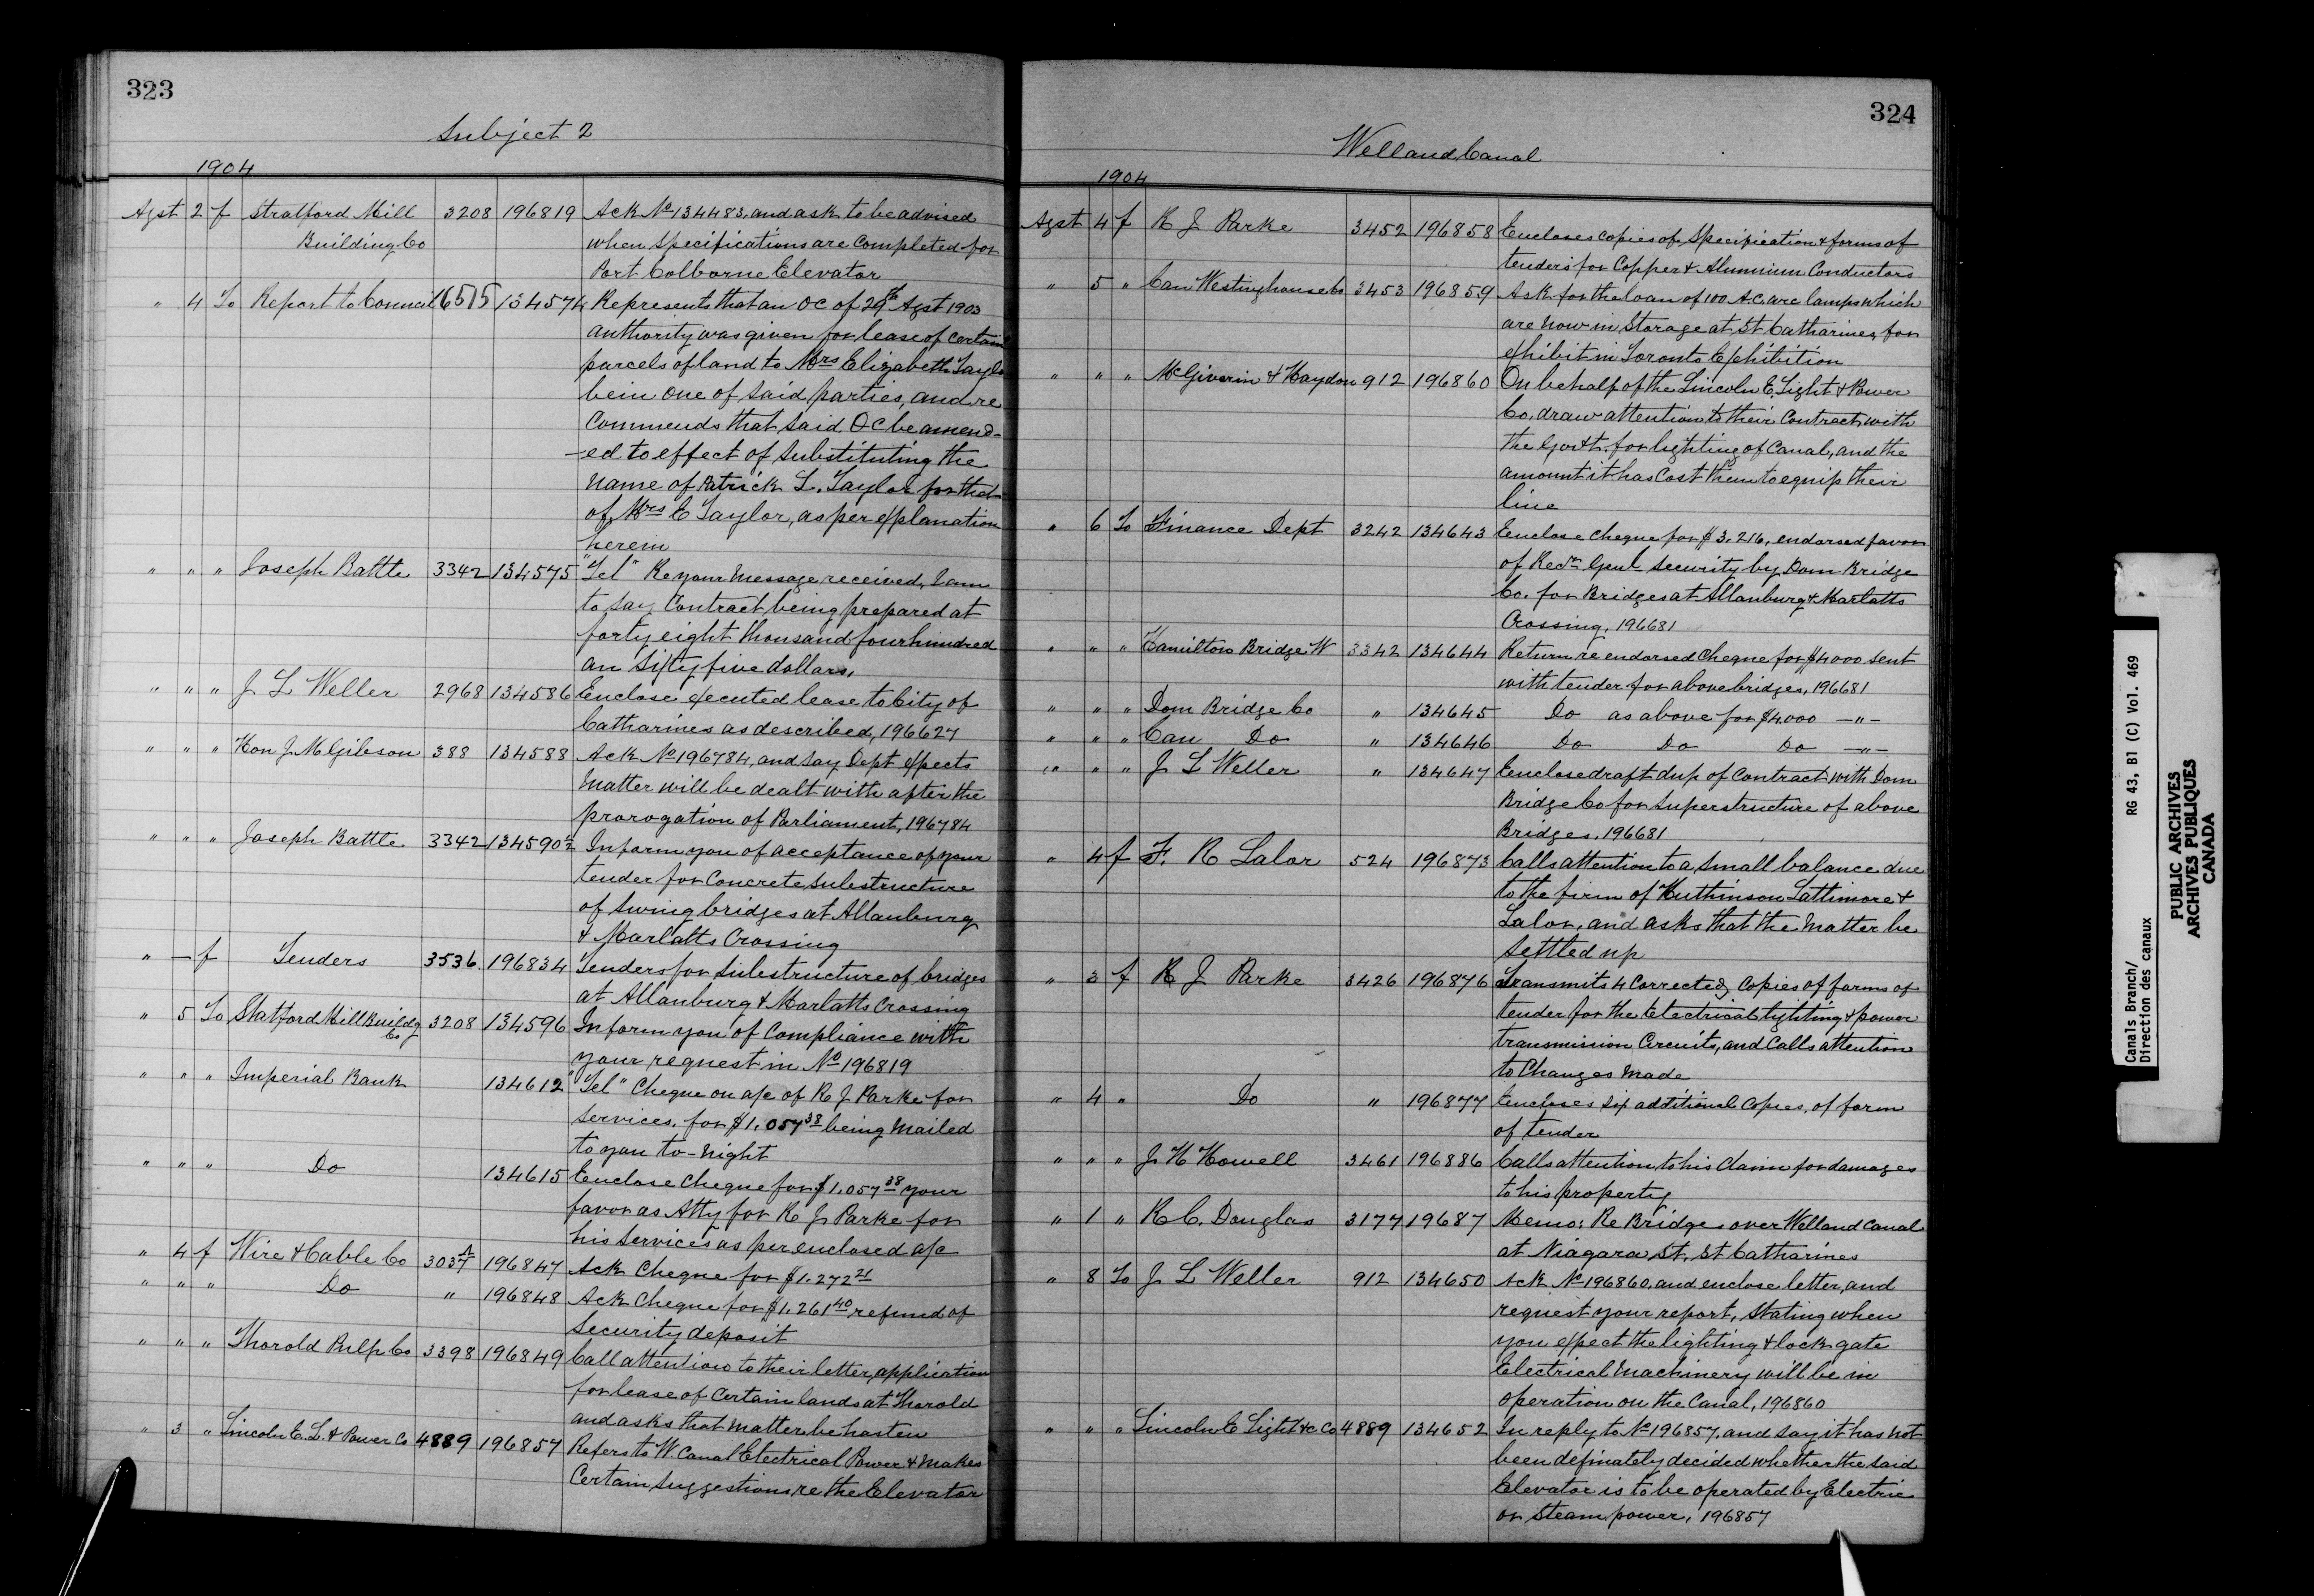 323
Subject 2
1904
Agst 2 f Stratford Mill 3208 196819 Ack No 134483, and ask to be advised
Building Co when specifications are completed for
Port Colborne Elevator
" 4 To Report to Council 16515 134574 Represents that an OC of 29th Agst 1903
authority was given for lease of certain
parcels of land to Mrs Elizabeth Taylor
bein one of said parties, and re
commends that said OC be amend-
-ed to effect of substituting the
name of Patrick L. Taylor for that
of Mrs E Taylor, as per explanation
herein
" " " Joseph Battle 3342 134575 "Tel" Re your message received, I am
to say Contract being prepared at
forty eight thousand four hundred
an sixty five dollars.
" " " J L Weller 2968 134586 Enclose executed lease to City of
Catharines as described, 196627
" " " Hon J M Gibson 388 134588 Ack No 196784, and say Dept expects
matter will be dealt with after the
prorogation of Parliament, 196784
" " " Joseph Battle 3342 134590½ Inform you of acceptance of your
tender for Concrete substructure
of swing bridges at Allanburg
& Marlatts Crossing
" — f Tenders 3536. 196834 Tenders for substructure of bridges
at Allanburg & Marlatts Crossing
" 5 To Statford Mill Buildg Co 3208 134596 Inform you of Compliance with
your request in No 196819
" " " Imperial Bank 134612 "Tel" Cheque on a/c of R J Parke for
services, for $1,057 38 being mailed
to you to-night
" " " Do 134615 Enclose Cheque for $1,057 38 your
favor as Atty for R J Parke for
his services as per enclosed a/c
" 4 f Wire & Cable Co 3037 A 196847 Ack Cheque for $1.272 21
" " " Do " 196848 Ack Cheque for $1,261 40 refund of
security deposit
" " " Thorold Pulp Co 3398 196849 Call attention to their letter, application
for lease of certain lands at Thorold
and asks that matter be hasten
" 3 " Lincoln E. L. & Power Co 4889 196857 Refers to W. Canal Electrical Power & makes
Certain suggestions re the Elevator
324
Welland Canal
1904
Agst 4 f R J Parke 3452 196858 Encloses copies of Specification & forms of
tenders for Copper & Aluminium Conductors
" 5 " Can Westinghouse Co 3453 196859 Ask for the loan of 100 A.C. arc lamps which
are now in storage at St Catharines, for
exhibit in Toronto Exhibition
" " " McGiverin & Haydon 912 196860 On behalf of the Lincoln E. Light & Power
Co. draw attention to their Contract with
the Govt. for lighting of Canal, and the
amount it has cost them to equip their
line
" 6 To Finance Dept 3242 134643 Enclose cheque for $3,216, endorsed favor
of Recr Genl security by Dom Bridge
Co. for Bridges at Allanburg & Marlatts
Crossing, 196681
" " " Hamilton Bridge W 3342 134644 Return re endorsed Cheque for $4000 sent
with tender for above bridges, 196681
" " " Dom Bridge Co " 134645 Do as above for $4.000 —"—
" " " Can Do " 134646 Do Do Do —"—
" " " J L Weller " 134647 Enclose draft dup of Contract with Dom
Bridge Co for superstructure of above
Bridges, 196681
" 4 f F. R Lalor 524 196873 Calls attention to a small balance due
to the firm of Huthinson Lattimore &
Lalor, and asks that the matter be
settled up
" 3 f R J Parke 3426 196876 Transmits 4 corrected copies of forms of
tender for the Electrical lighting & power
transmission Circuits, and calls attention
to Changes made
" 4 " Do " 196877 Encloses six additional copies, of form
of tender
" " " J H Howell 3461 196886 Calls attention to his claim for damages
to his property
" 1 " R C. Douglas 3177 19687 Memo: Re Bridge over Welland Canal
at Niagara St, St Catharines
" 8 To J L Weller 912 134650 Ack No 196860, and enclose letter, and
request your report, stating when
you expect the lighting & lock gate
Electrical machinery will be in
operation on the Canal, 196860
" " " Lincoln E Light &c Co 4889 134652 In reply to No 196857, and say it has not
been definately decided whether the said
Elevator is to be operated by Electric
or steam power, 196857
Canals Branch/ RG 43, B1 (C) Vol. 469
Direction des canaux
PUBLIC ARCHIVES
ARCHIVES PUBLIQUES
CANADA